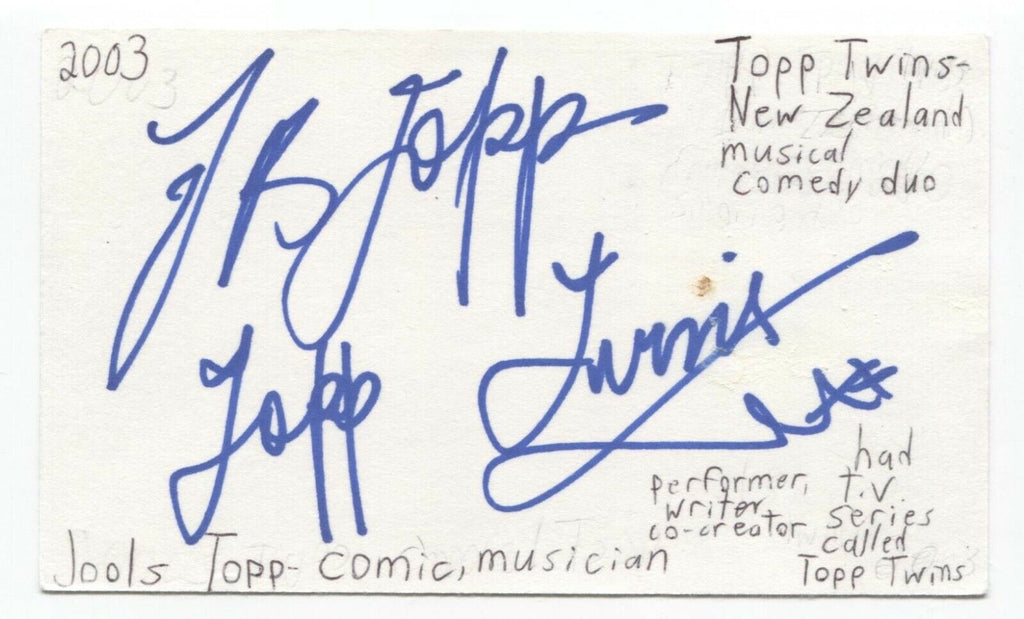 2003
Topp Twins-
New Zealand
musical
comedy duo
Topp
Topp Twins
had
performer, T.V.
writer, series
co-creator, called
Topp Twins
Jools Topp- comic, musician